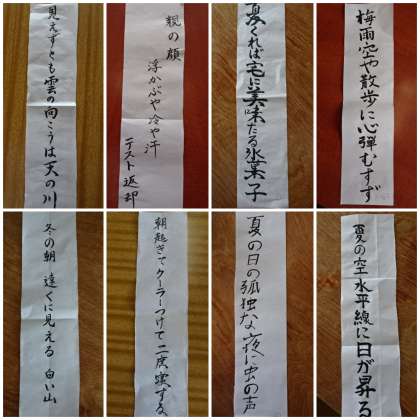 見えずとも雲の向こうは天の川
親の顔
浮かぶや冷や汗
テスト返却
夏くれば宅に美味たる氷菓子
梅雨空や散歩に心弾むすず
冬の朝 遠くに見える 白い山
朝起きてクーラーつけて二度寝する
夏の日の孤独な夜に虫の声
夏の空 水平線に日が昇る